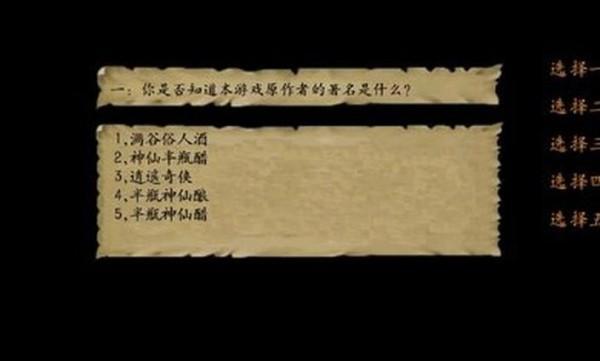 一：你是否知道本游戏原作者的署名是什么？
1,漓谷俗人酒
2,神仙半瓶醋
3,逍遥奇侠
4,半瓶神仙酿
5,半瓶神仙醋
选择一
选择二
选择三
选择四
选择五